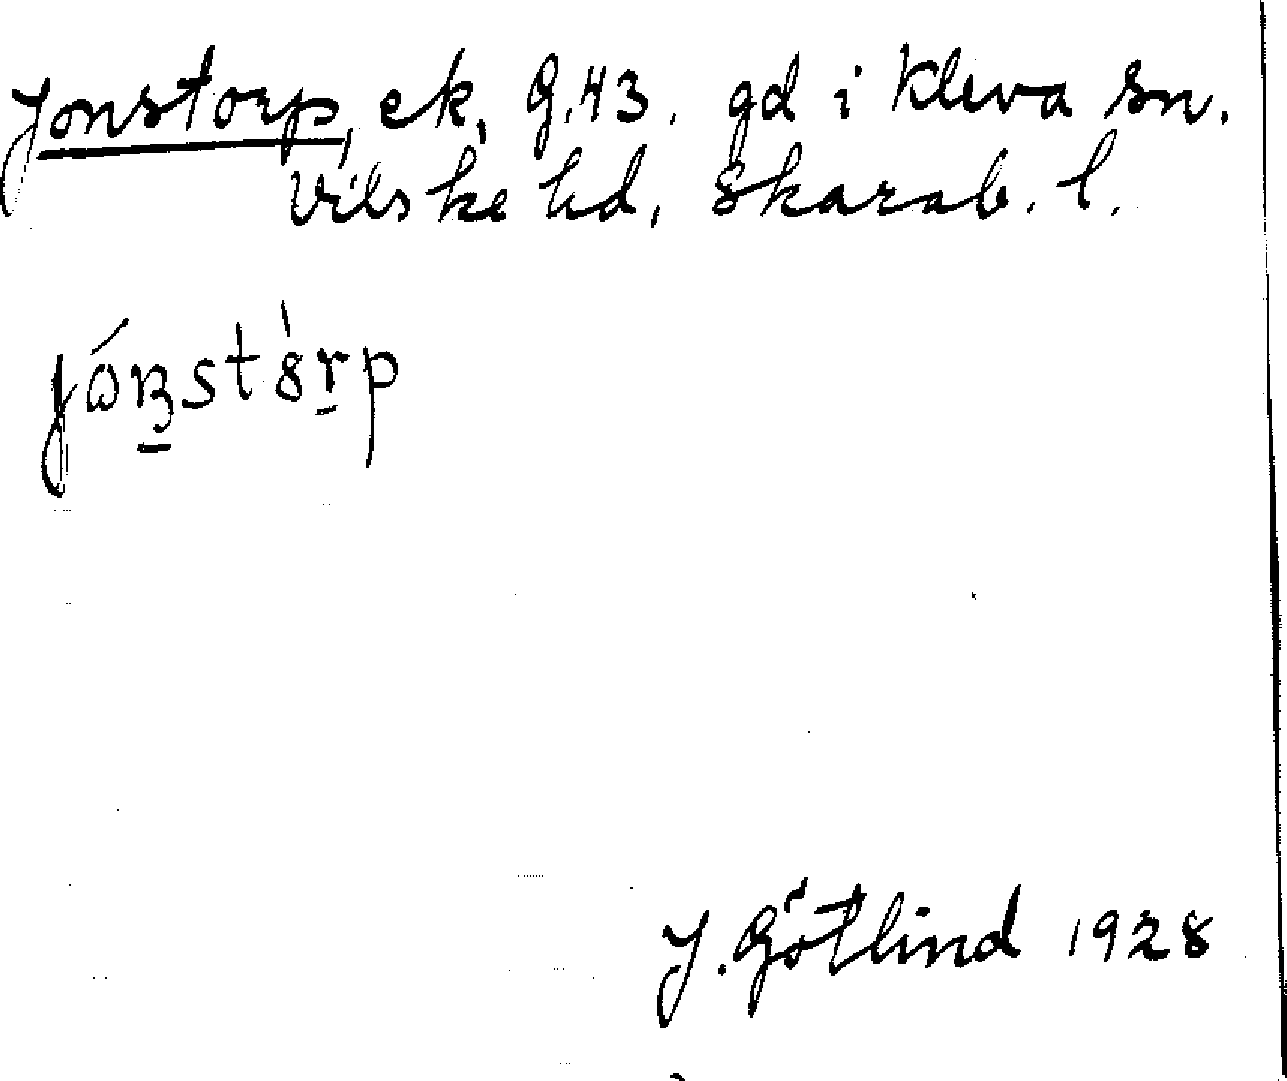 Jonstorp, ek, G.43. gd i Kleva sn.
Vilske hd, Skarab. l.
J. Götlind 1928